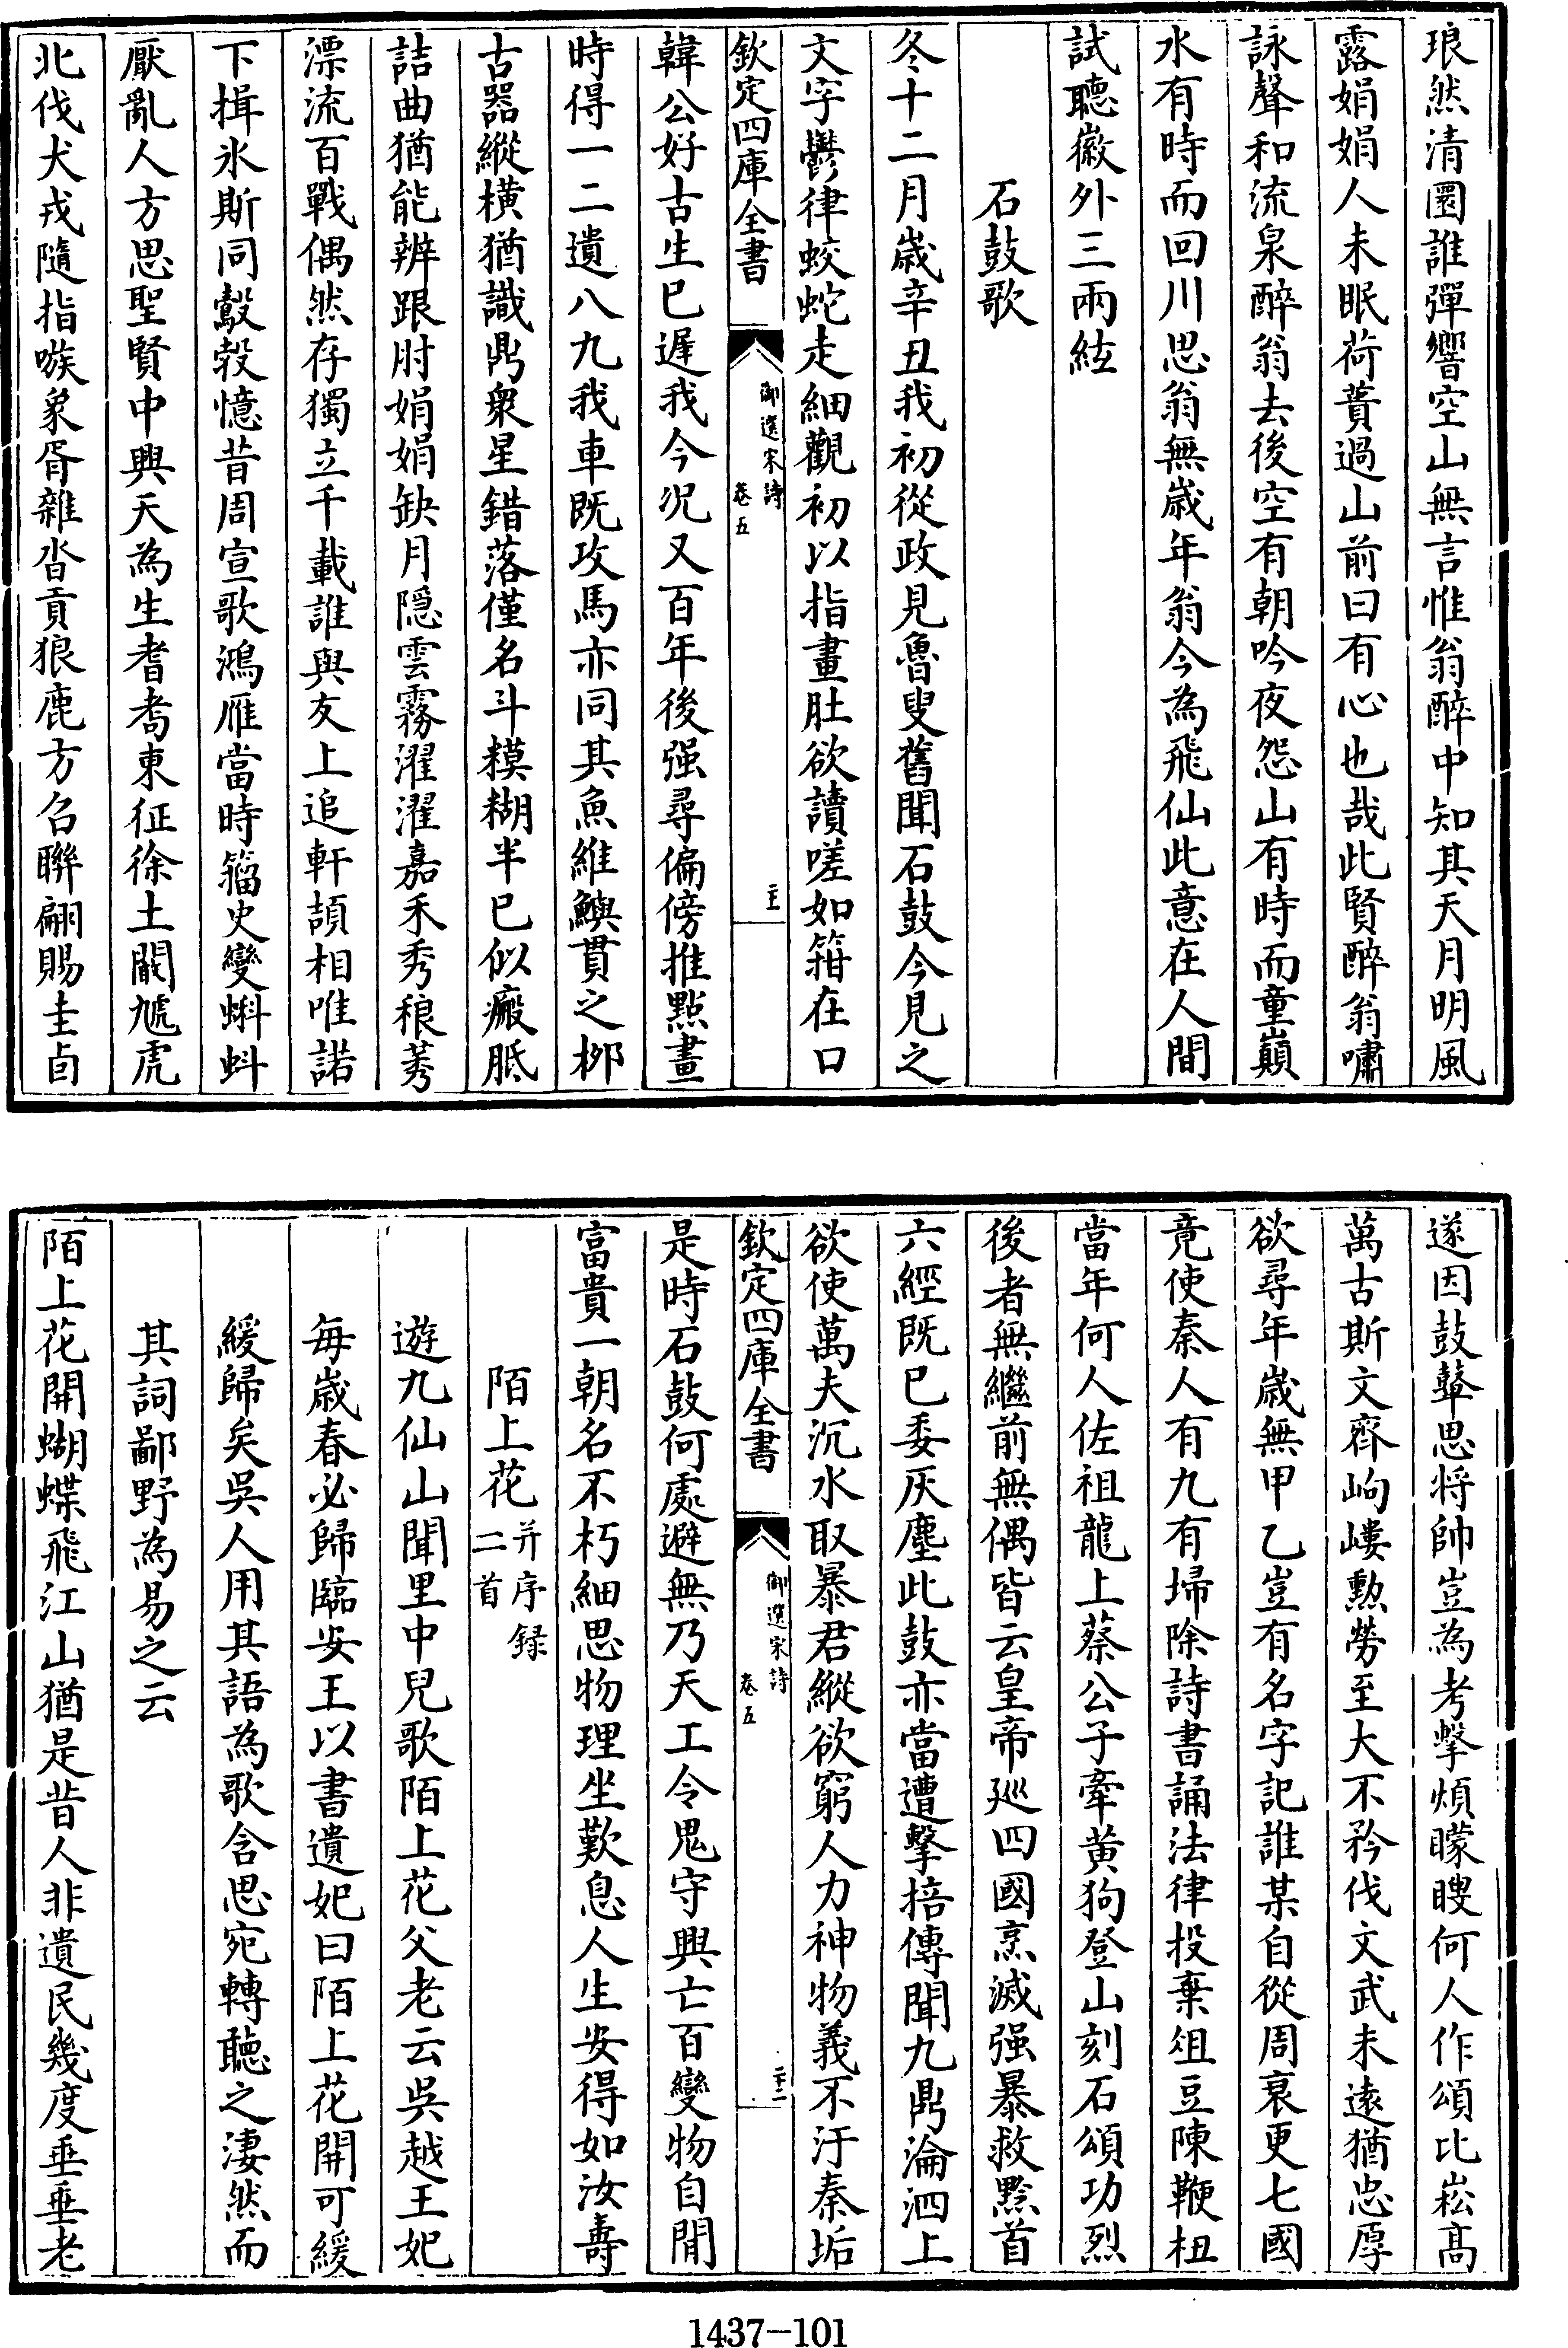 琅然清圜誰彈響空山無言惟翁醉中知其天月明風
露娟娟人未眠荷蕢過山前曰有心也哉此賢醉翁嘯
詠聲和流泉醉翁去後空有朝吟夜怨山有時而童巔
水有時而回川思翁無歲年翁今為飛仙此意在人間
試聽徽外三兩絃
石鼓歌
冬十二月歲辛丑我初從政見魯叟舊聞石鼓今見之
文字鬱律蛟蛇走細觀初以指畫肚欲讀嗟如箝在口
欽定四庫全書
御選宋詩
卷五
韓公好古生已遲我今况又百年後强尋偏傍推點畫
時得一二遺八九我車既攻馬亦同其魚維鱮貫之柳
古器縱横猶識鼎衆星錯落僅名斗糢糊半已似瘢胝
詰曲猶能辨跟肘娟娟缺月隱雲霧濯濯嘉禾秀稂莠
漂流百戰偶然存獨立千載誰與友上追軒頡相唯諾
下揖氷斯同鷇㝅憶昔周宣歌鴻雁當時籀史變蝌蚪
厭亂人方思聖賢中興天為生耆耇東征徐土闞虓虎
北伐犬戎隨指嗾象胥雜沓貢狼鹿方召聯翩賜圭卣
遂因鼓鼙思将帥豈為考擊煩矇瞍何人作頌比崧髙
萬古斯文齊岣嶁勲勞至大不矜伐文武未遠猶忠厚
欲尋年歲無甲乙豈有名字記誰某自從周衰更七國
竟使秦人有九有埽除詩書誦法律投棄俎豆陳鞭杻
當年何人佐祖龍上蔡公子牽黄狗登山刻石頌功烈
後者無繼前無偶皆云皇帝廵四國烹滅强暴救黔首
六經既已委灰塵此鼓亦當遭擊掊傳聞九鼎淪泗上
欲使萬夫沉水取暴君縱欲窮人力神物義不汙秦垢
欽定四庫全書
御選宋詩
卷五
是時石鼓何處避無乃天工令鬼守興亡百變物自閒
富貴一朝名不朽細思物理坐歎息人生安得如汝壽
陌上花并序録二首
遊九仙山聞里中兒歌陌上花父老云吳越王妃
毎歲春必歸臨安王以書遺妃曰陌上花開可緩
緩歸矣吳人用其語為歌含思宛轉聽之淒然而
其詞鄙野為易之云
陌上花開蝴蝶飛江山猶是昔人非遺民幾度垂垂老
1437-101